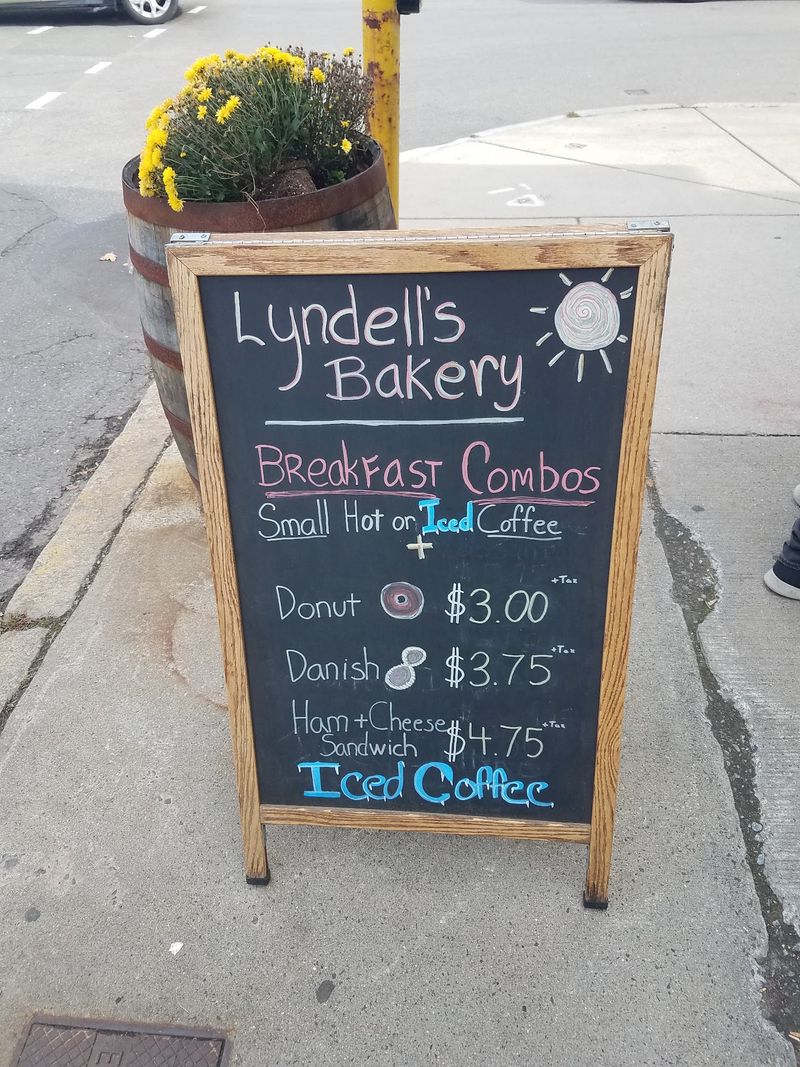 Lyndell's
Bakery
Breakfast Combos
Small Hot or Iced Coffee
+
Donut $3.00 +Tax
Danish $3.75 +Tax
Ham + Cheese
Sandwich $4.75 +Tax
Iced Coffee